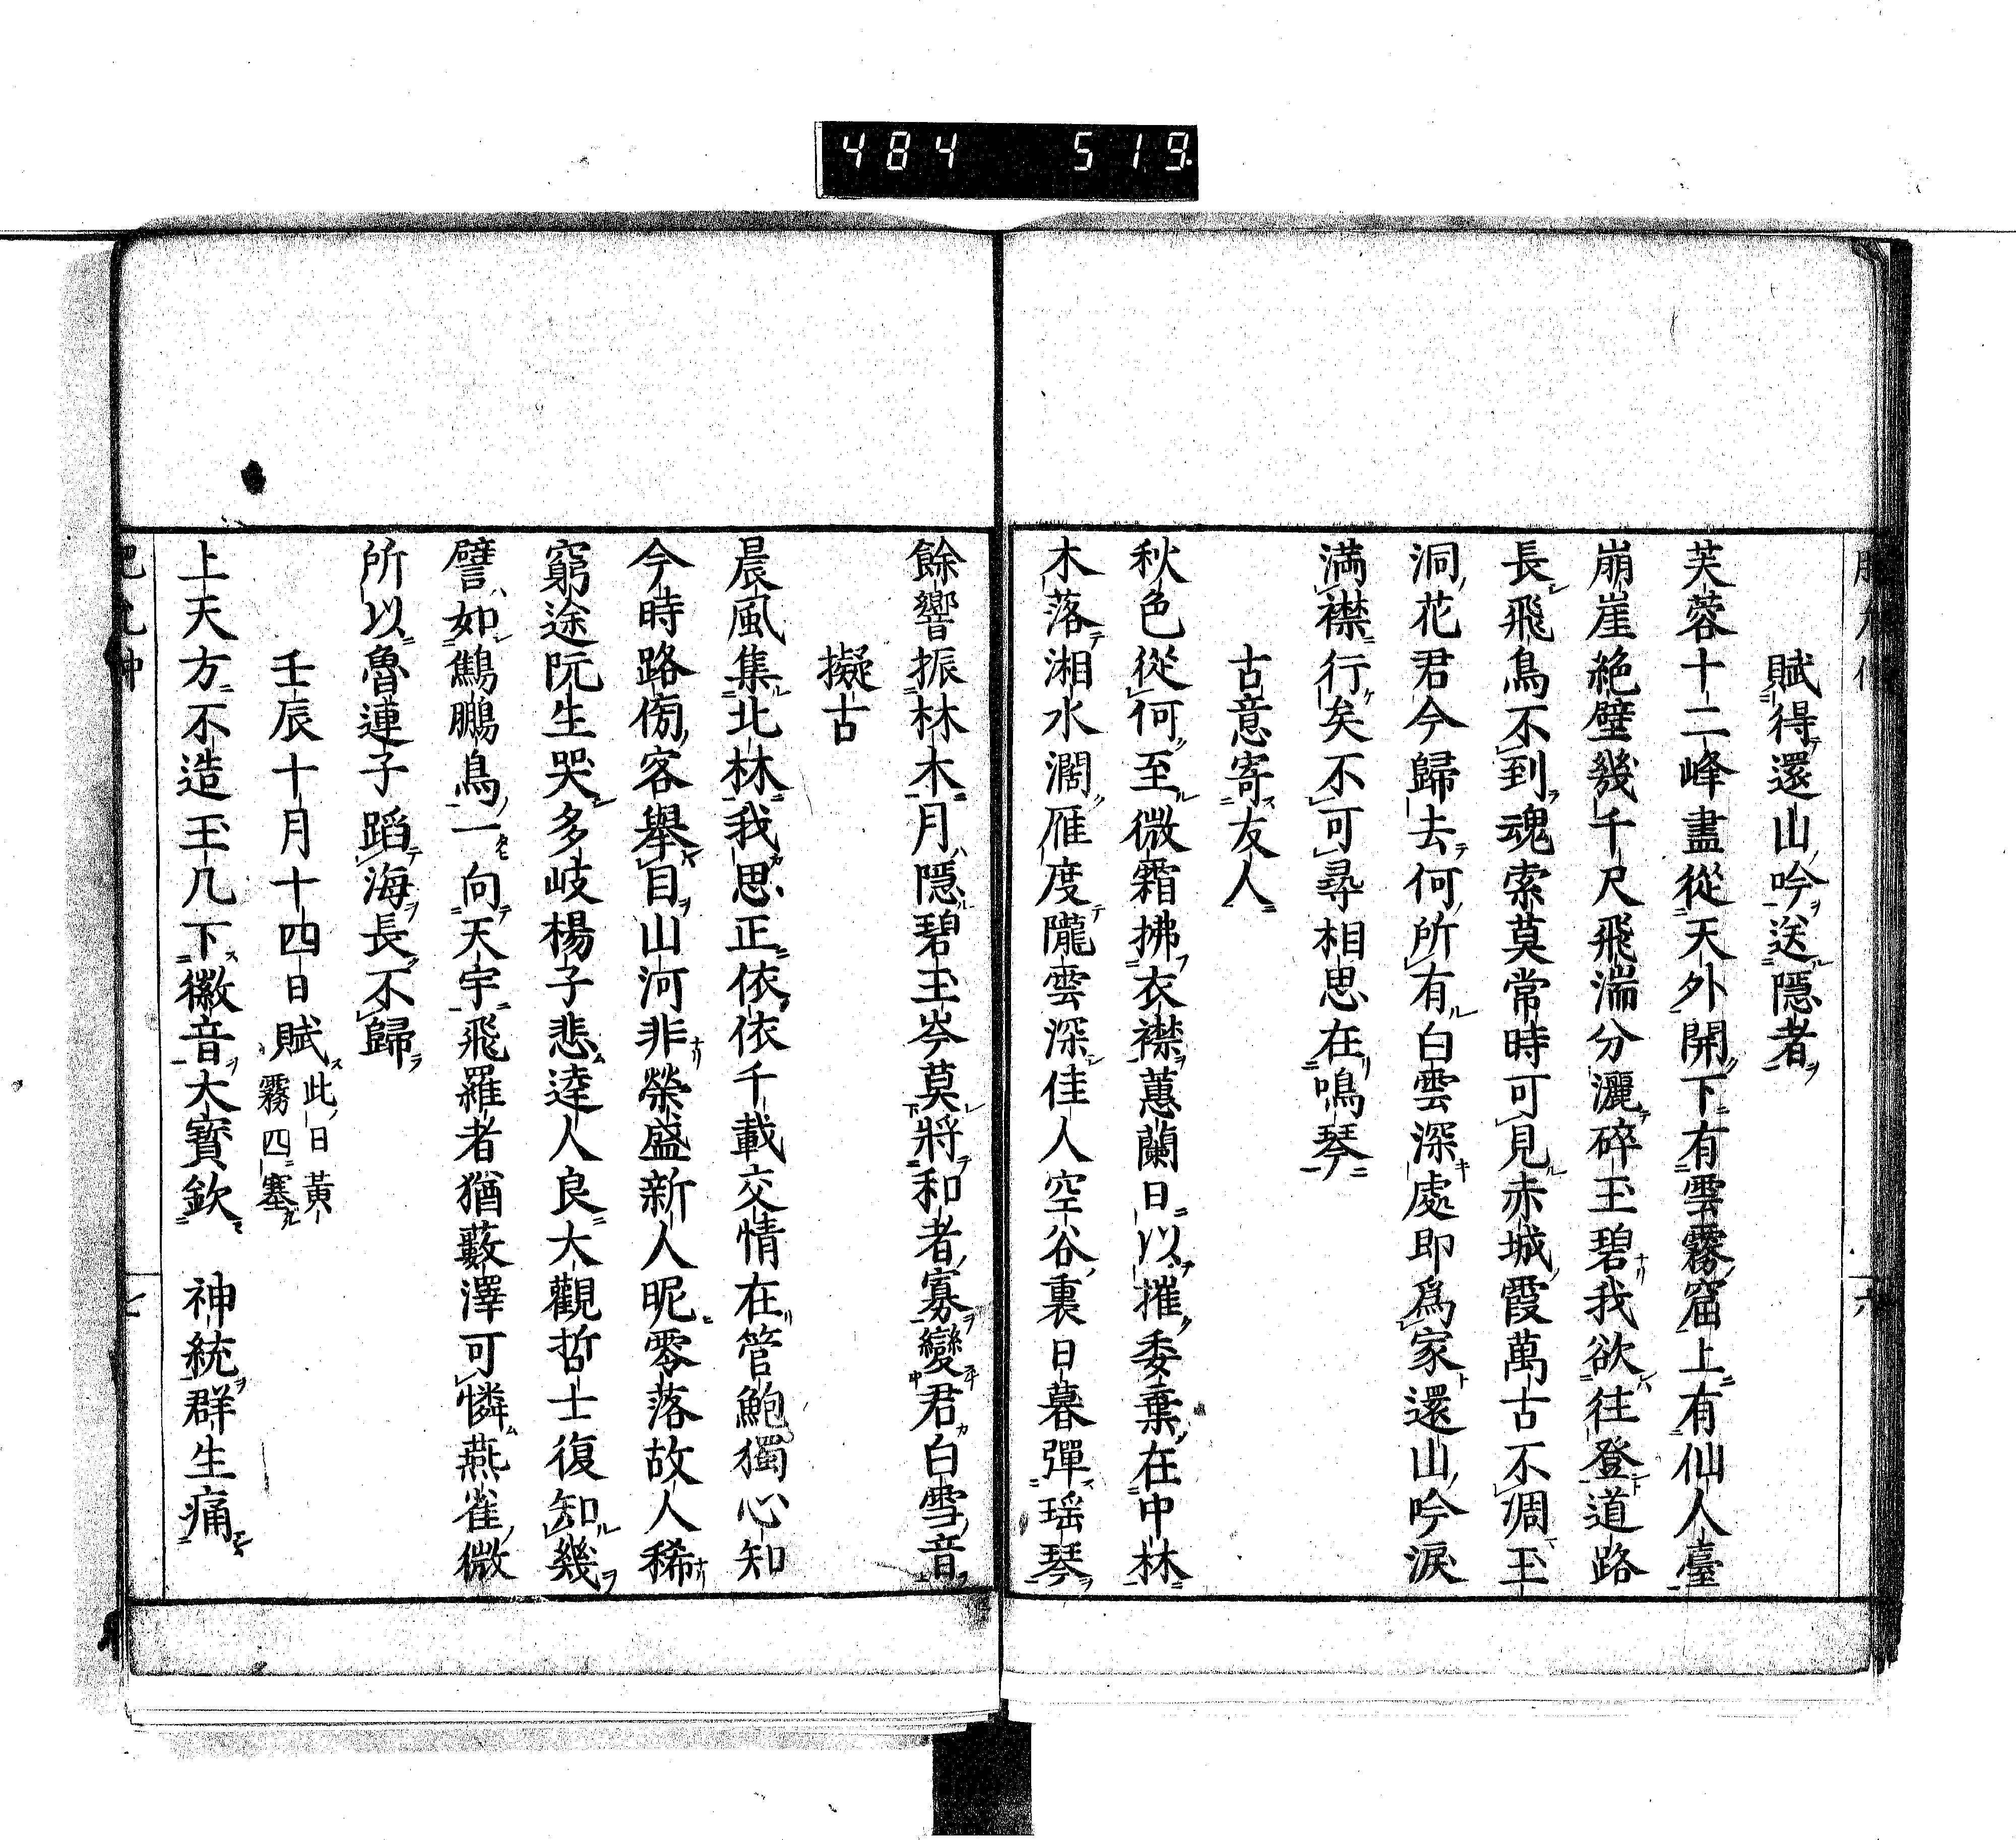 484 519
賦得還山吟送隱者
芙蓉十二峰盡從天外開下有雲霧窟上有仙人臺
崩崖絶壁幾千尺飛湍分灑碎玉碧我欲往登道路
長飛鳥不到魂索莫常時可見赤城霞萬古不凋玉
洞花君今歸去何所有白雲深處即爲家還山吟淚
満襟行矣不可尋相思在鳴琴
古意寄友人
秋色從何至微霜拂衣襟蕙蘭日以摧委棄在中林
木落湘水濶雁度隴雲深佳人空谷裏日暮彈瑶琴
餘響振林木月隱碧玉岑莫將和者寡變君白雪音
擬古
晨風集北林我思正依依千載交情在管鮑獨心知
今時路傍客舉目山河非榮盛新人昵零落故人稀
窮途阮生哭多岐楊子悲逹人良大觀哲士復知幾
譬如鷦鵬鳥一向天宇飛羅者猶藪澤可憐燕雀微
所以魯連子蹈海長不歸
壬辰十月十四日賦此日黃霧四塞
上天方不造玉几下徽音大寳欽 神統群生痛